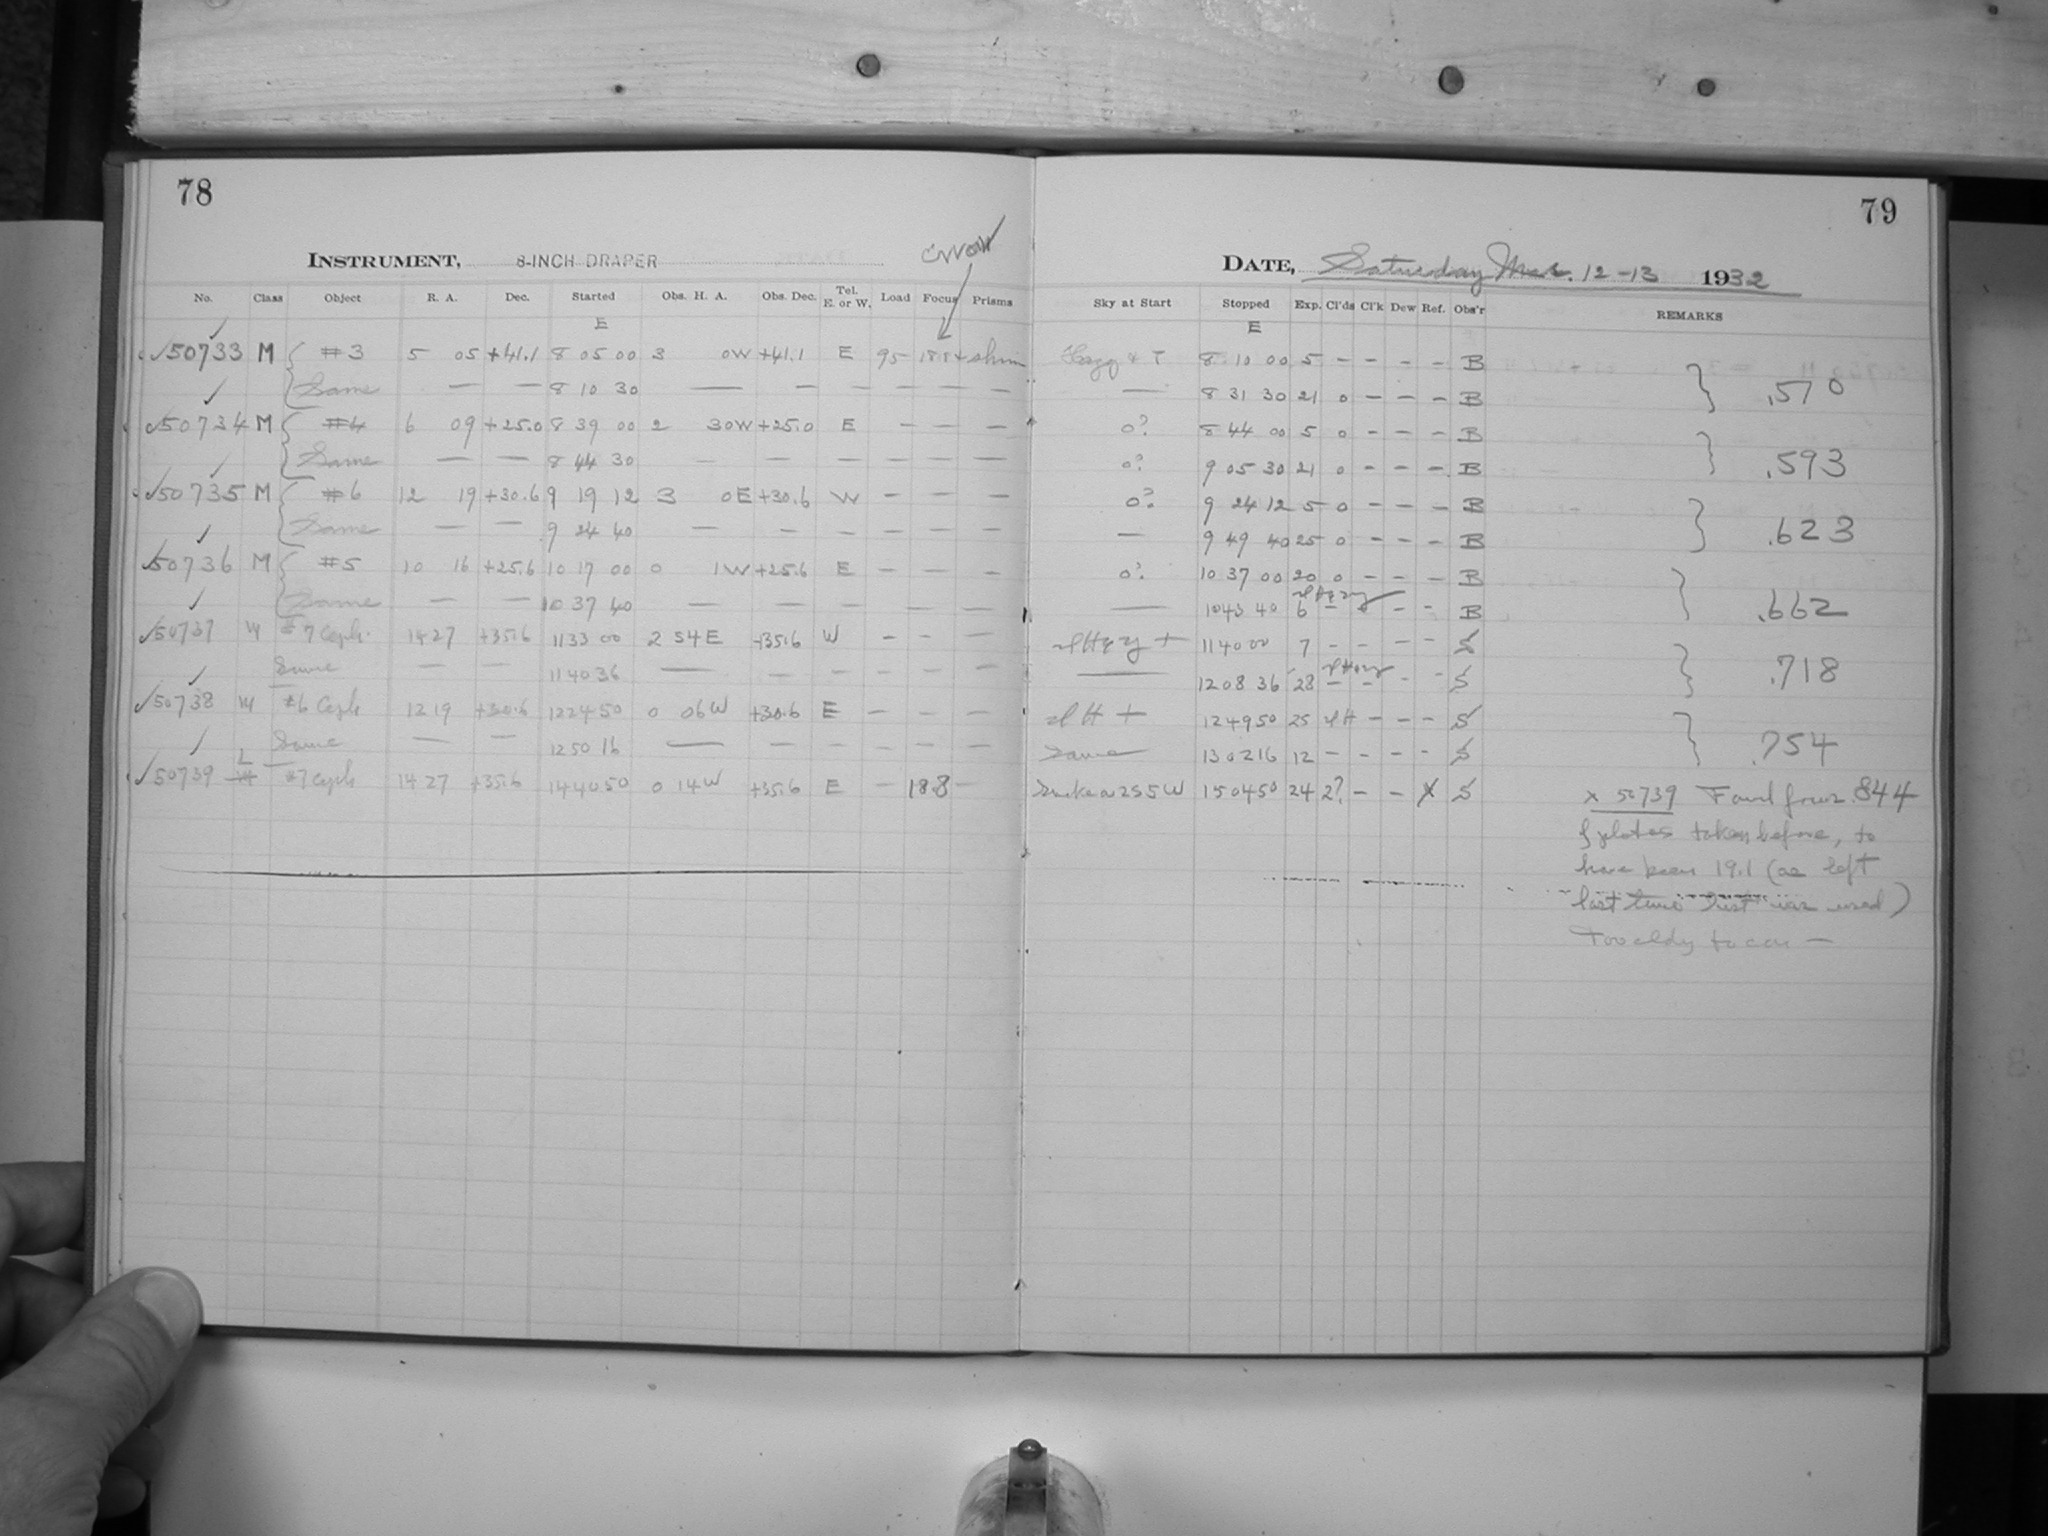 78
INSTRUMENT, 8-INCH DRAPER
error
No. Class Object R. A. Dec. Started Obs. H. A. Obs. Dec. Tel. E. or W. Load Focus Prisms
E
✓50733 M #3 5 05 +41.1 8 05 00 3 0W +41.1 E 95
Same — — 8 10 30 — — — — — —
✓50734 M #4 6 09 +25.0 8 39 00 2 30W +25.0 E — — —
Same — — 8 44 30 — — — — — —
✓50735 M #6 12 19 +30.6 9 19 12 3 0E +30.6 W — — —
Same — — 9 24 40 — — — — — —
✓50736 M #5 10 16 +25.6 10 17 00 0 1W +25.6 E — — —
Same — — 10 37 40 — — — — — —
✓50737 M #7 Ceph. 14 27 +35.6 11 33 00 2 54E +35.6 W — — —
Same — — 11 40 36 — — — — — —
✓50738 M #6 Ceph 12 19 +30.6 12 24 50 0 06W +30.6 E — — —
Same — — 12 50 16 — — — — — —
✓50739 L #7 Ceph 14 27 +35.6 14 40 50 0 14W +35.6 E — 18.8 —
79
DATE, Saturday Mar. 12-13 1932
Sky at Start Stopped Exp. Cl'ds Cl'k Dew Ref. Obs'r REMARKS
E
8 10 00 5 — — — — B
— 8 31 30 21 0 — — — B } .570
0? 8 44 00 5 0 — — — B
0? 9 05 30 21 0 — — — B } .593
0? 9 24 12 5 0 — — — B
— 9 49 40 25 0 — — — B } .623
0? 10 37 00 20 0 — — — B
— 10 43 40 6 — — — B } .662
11 40 00 7 — — — — S
— 12 08 36 28 — — — — S } .718
12 49 50 25 — — — S
Same 13 02 16 12 — — — — S } .754
15 04 50 24 2? — — X S
x 50739 Found focus .844
of plates taken before, to
have been 19.1 (as left
last time inst was used)